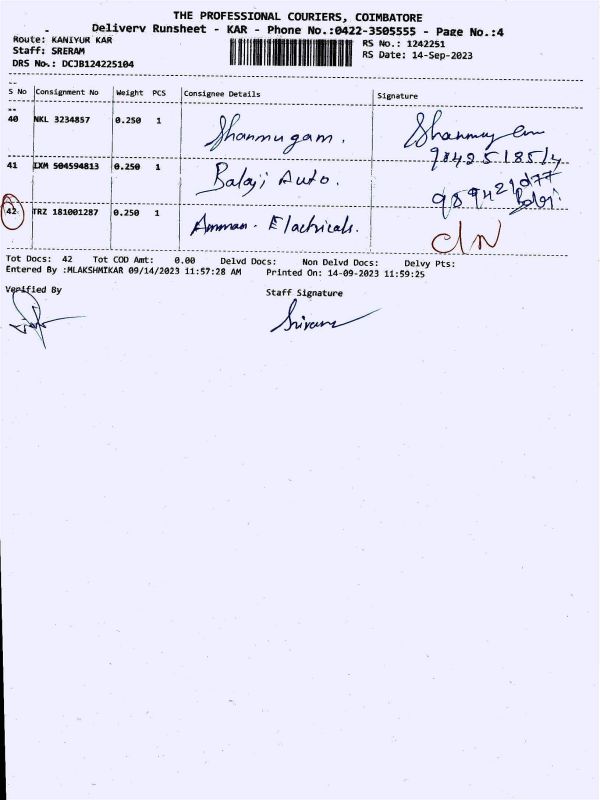 THE PROFESSIONAL COURIERS, COIMBATORE
Delivery Runsheet - KAR - Phone No.:0422-3505555 - Page No.:4
Route: KANIYUR KAR
RS No.: 1242251
Staff: SRERAM
RS Date: 14-Sep-2023
DRS No.: DCJB124225104
S No Consignment No Weight PCS Consignee Details Signature
40 NKL 3234857 0.250 1 Shanmugam.
41 IXM 504594813 0.250 1 Balaji Auto.
42 TRZ 181001287 0.250 1 Amman. Electricals.
Tot Docs: 42 Tot COD Amt: 0.00 Delvd Docs: Non Delvd Docs: Delvy Pts:
Entered By :MLAKSHMIKAR 09/14/2023 11:57:28 AM Printed On: 14-09-2023 11:59:25
Verified By Staff Signature